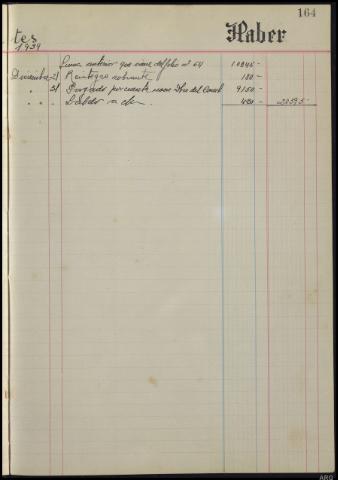 164
tes
Haber
1939
Suma anterior que viene del folio nº 64 10845-
Diciembre 21 Reintegro sobrante 180-
" 31 Pagado por cuenta 9150-
" " Saldo a 420 20595-
ARQ